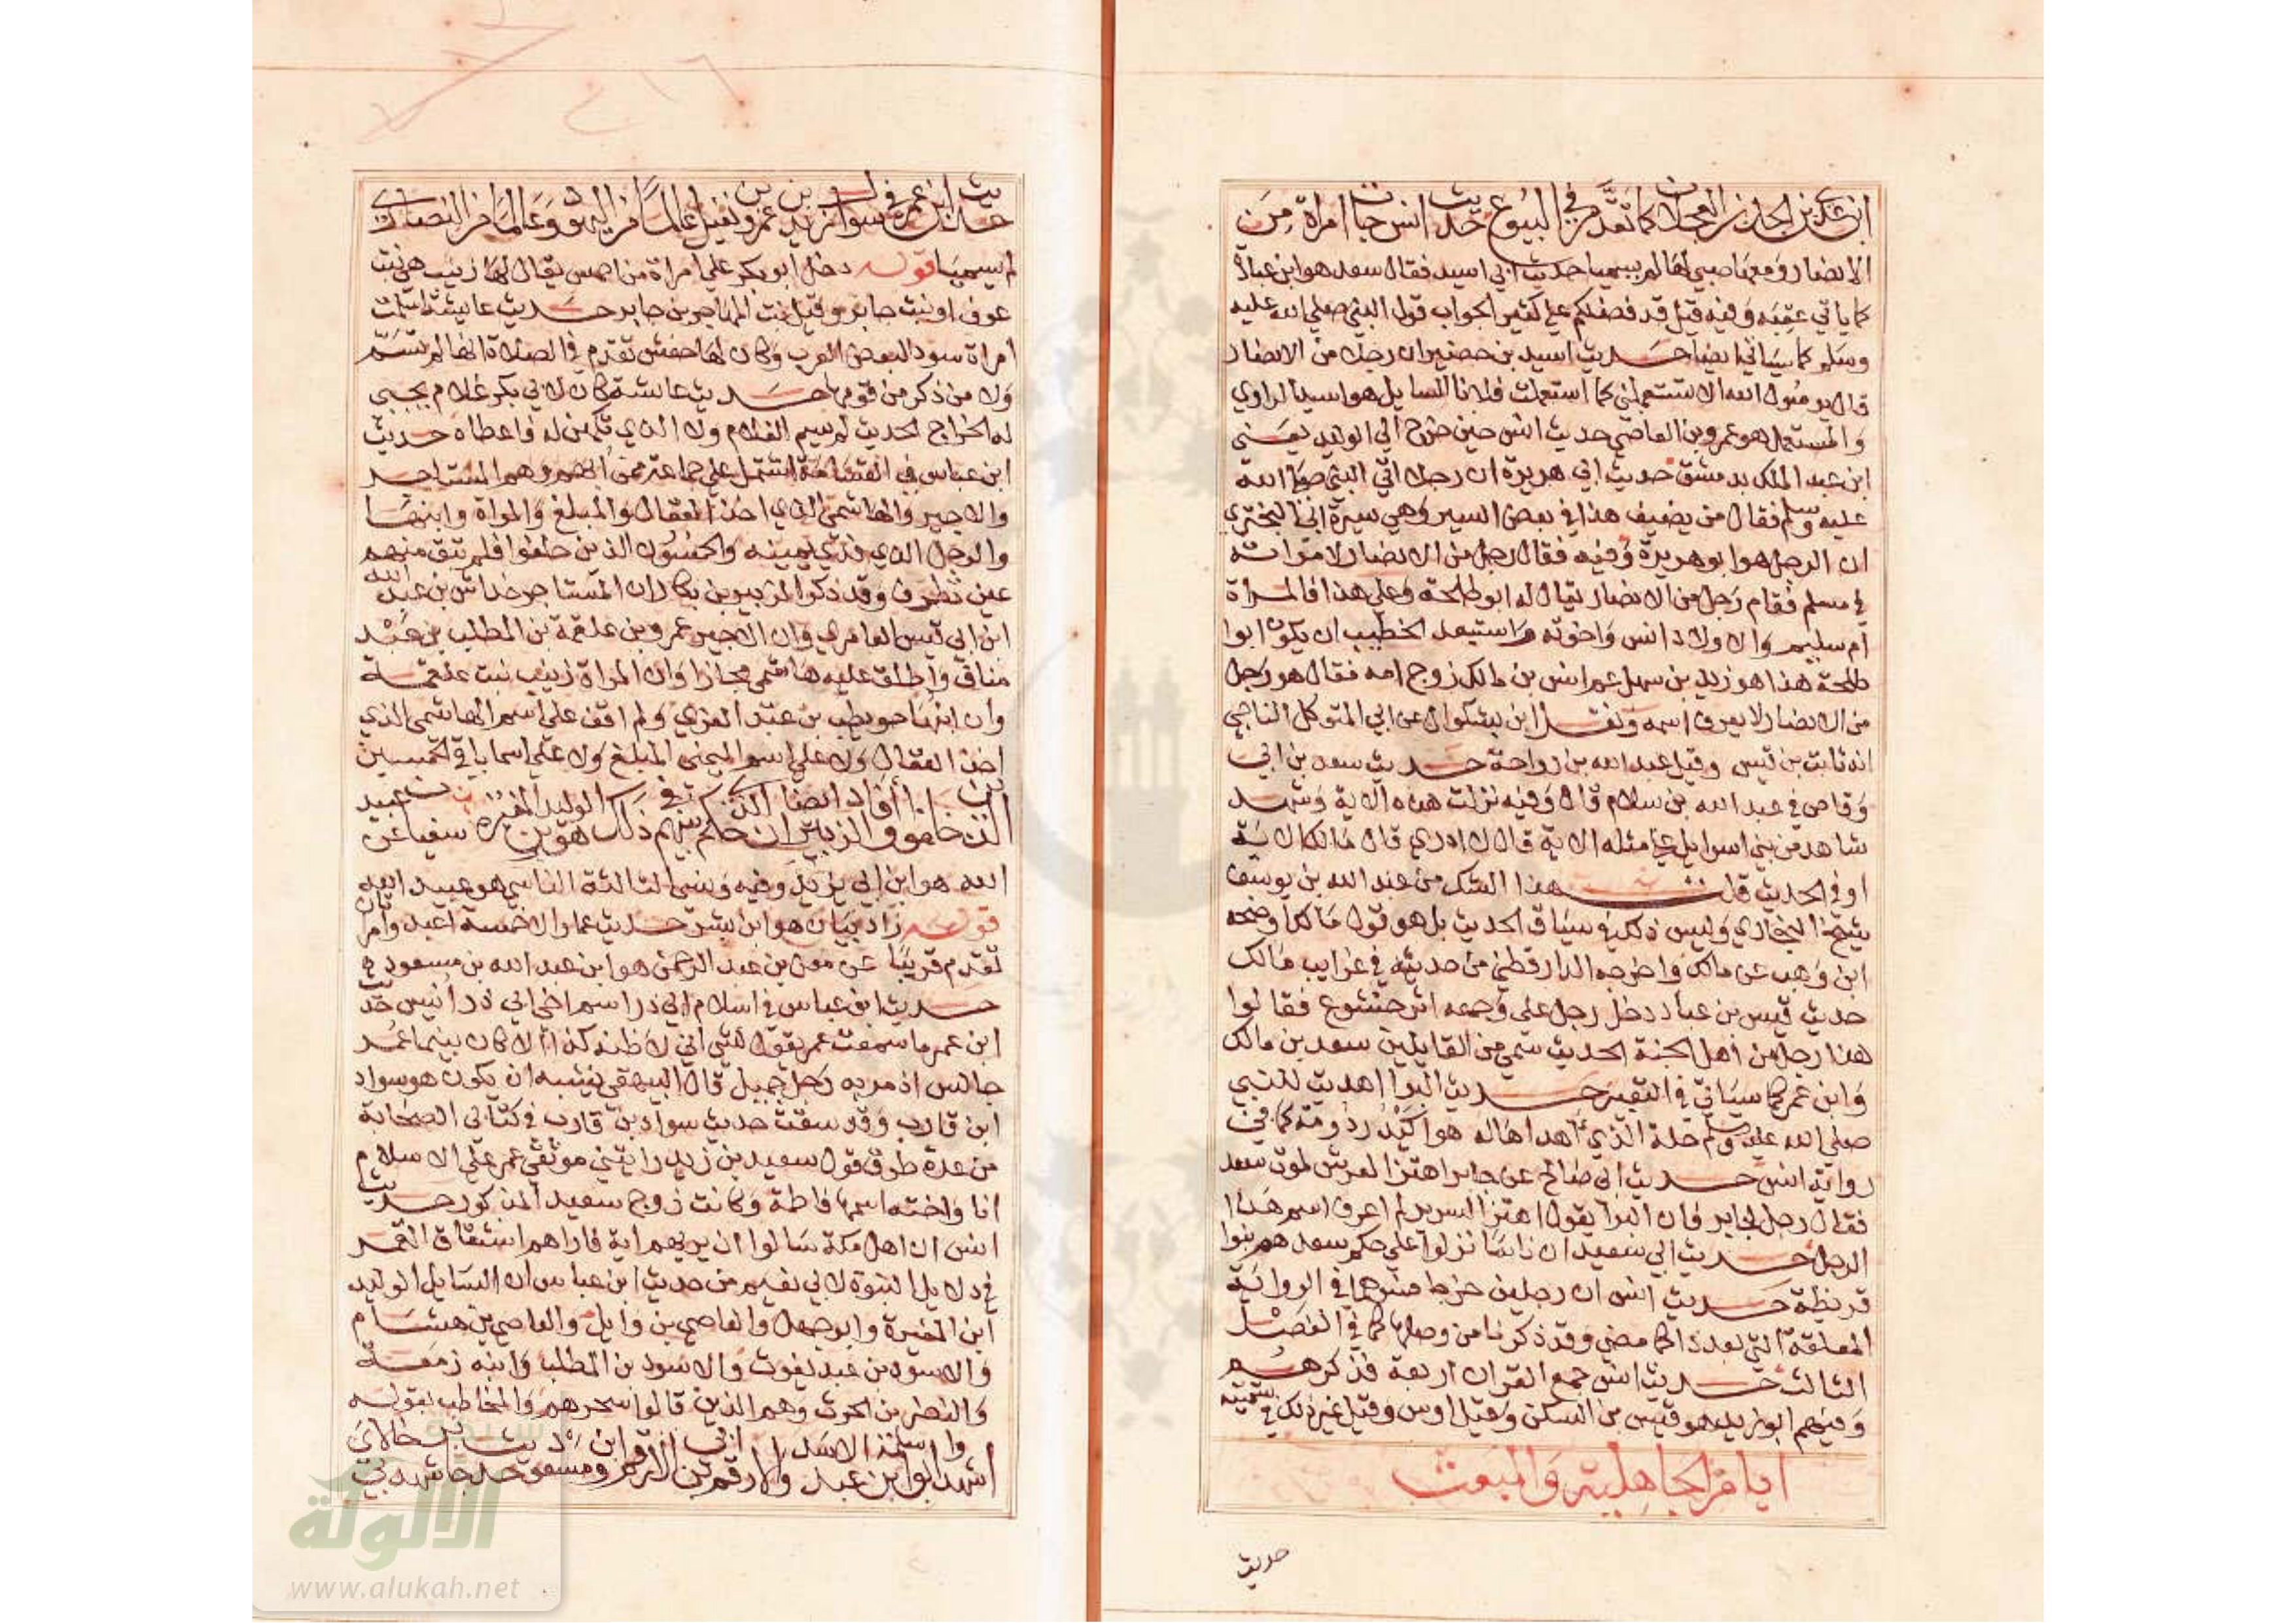 ابن عدي بن الجد بن العجلان كما تقدم في البيوع حديث انس جات امراة من
الانصار ومعها صبي لها لم يسميا حديث ابي اسيد فقال سعد هو ابن عبادة
كما ياتي عقبه وفيه قيل قد فضلكم علي كثير الجواب قول النبي صلي الله عليه
وسلم كما سياتي ايضا حديث اسيد بن حضير ان رجلا من الانصار
قال يرسول الله الا تستعملني كما استعملت فلانا السايل هو اسيد الراوي
والمستعمل هو عمرو بن العاصي حديث انس حين خرج الي الوليد يعني
ابن عبد الملك بدمشق حديث ابي هريرة ان رجلا اتي النبي صلي الله
عليه وسلم فقال من يضيف هذا في بعض السير وهي سيرة ابي البختري
ان الرجل هو ابو هريرة وفيه فقال رجل من الانصار لامراته
في مسلم فقام رجل من الانصار يقال له ابو طلحة وعلي هذا فالمراة
ام سليم والاولاد انس واخوته واستبعد الخطيب ان يكون ابوا
طلحة هذا هو زيد بن سهل عم انس بن مالك زوج امه فقال هو رجل
من الانصار لا يعرف اسمه ونقل ابن بشكوال عن ابي المتوكل الناجي
انه ثابت بن قيس وقيل عبد الله بن رواحة حديث سعد بن ابي
وقاص في عبد الله بن سلام قال وفيه نزلت هذه الاية وشهد
شاهد من بني اسرايل علي مثله الاية قال لا ادري قال مالك الاية
او في الحديث قلت هذا الشك من عبد الله بن يوسف
شيخ البخاري وليس ذلك في سياق الحديث بل هو قول مالك وضحه
ابن وهب عن مالك واخرجه الدارقطني من حديثه في غرايب مالك
حديث قيس بن عباد دخل رجل علي وجهه اثر خشوع فقالوا
هذا رجل من أهل الجنة الحديث سمي من القايلين سعد بن مالك
وابن عمر كما سياتي في التعبير حديث البرا اهديت للنبي
صلي الله عليه وسلم حلة الذي أهداها له هو اكيدر دومة كما في
رواية انس حديث ابي صالح عن جابر اهتز العرش لموت سعد
فقال رجل لجابر فان البرا يقول اهتز السرير لم اعرف اسم هذا
الرجل حديث ابي سعيد ان ناسا نزلوا علي حكم سعد هم بنوا
قريظة حديث انس ان رجلين خرجا هما في الرواية
المعلقة التي بعد ذا كما مضي وقد ذكرنا من وصلها كما في الفصل
الثالث حديث انس جمع القران اربعة فذكرهم
وفيهم ابو زيد هو قيس بن السكن وقيل اوس وقيل غير ذلك في تسميته
ايام الجاهلية والمبعث
حديث
حديث ابن عمر في سوال زيد بن عمرو بن نفيل عالما من اليهود وعالما من النصاري
لم يسميا قوله دخل ابو بكر علي امراة من احمس يقال لها زينب هي بنت
عوف او بنت جابر وقيل بنت المهاجر بن جابر حديث عايشة اسلمت
امراة سودا لبعض العرب وكان لها حفش تقدم في الصلاة انها لم تسم
ولا من ذكر من قومها حديث عائشة كان لابي بكر غلام يجبي
له الخراج الحديث لم يسم الغلام ولا الذي تكهن له واعطاه حديث
ابن عباس في القسامة اشتمل علي جماعة ممن ابهم وهم المستاجر
والاجير والهاشمي الذي اخذ العقال والمبلغ والمراة وابنها
والرجل الذي فدي يمينه والخمسون الذين حلفوا فلم تبق منهم
عين تطرف وقد ذكر الزبير بن بكار ان المستاجر خداش بن عبد الله
ابن ابي قيس العامري وان الاجير عمرو بن علقمة بن المطلب بن عبد
مناف واطلق عليه هاشمي مجازا وان المراة زينب بنت علقمة
وان ابنها حويطب بن عبد العزي ولم اقف علي اسم الهاشمي الذي
اخذ العقال ولا علي اسم اليمني المبلغ ولا علي اسما باقي الخمسين
الذين حلفوا وافاد ايضا الزبير ان الذي حكم بينهم في ذلك هو الوليد بن المغيرة سفيا عن عبيد
الله هو ابن ابي يزيد وفيه ونسي الثالثة الناسي هو عبيد الله
قوله زاد بيان هو ابن بشر حديث عمار الا خمسة اعبد وامراتان
تقدم قريبا عن معن بن عبد الرحمن هو ابن عبد الله بن مسعود
حديث ابن عباس في اسلام ابي ذر اسم اخي ابي ذر انيس حديث
ابن عمر ما سمعت عمر يقول لشي اني لاظنه كذا الا كان بينما عمر
جالس اذ مر به رجل جميل قال البيهقي يشبه ان يكون هو سواد
ابن قارب وقد سقت حديث سواد بن قارب في كتابي الصحابة
من عدة طرق قول سعيد بن زيد رايتني موثقي عمر علي الاسلام
انا واخته اسمها فاطمة وكانت زوج سعيد المذكور حديث
انس ان اهل مكة سالوا ان يريهم اية فاراهم انشقاق القمر
في دلايل النبوة لابي نعيم من حديث ابن عباس ان السايل الوليد
ابن المغيرة وابو جهل والعاصي بن وايل والعاصي بن هشام
والاسود بن عبد يغوث والاسود بن المطلب وابنه زمعة
والنضر بن الحرث وهم الذين قالوا سحرهم والمخاطب بقوله
اشهدوا ابو سلمة بن عبد الاسد والارقم بن ابي الارقم وابن مسعود حديث جابر شهد بي خالاي
سبكة
الالوكة
www.alukah.net